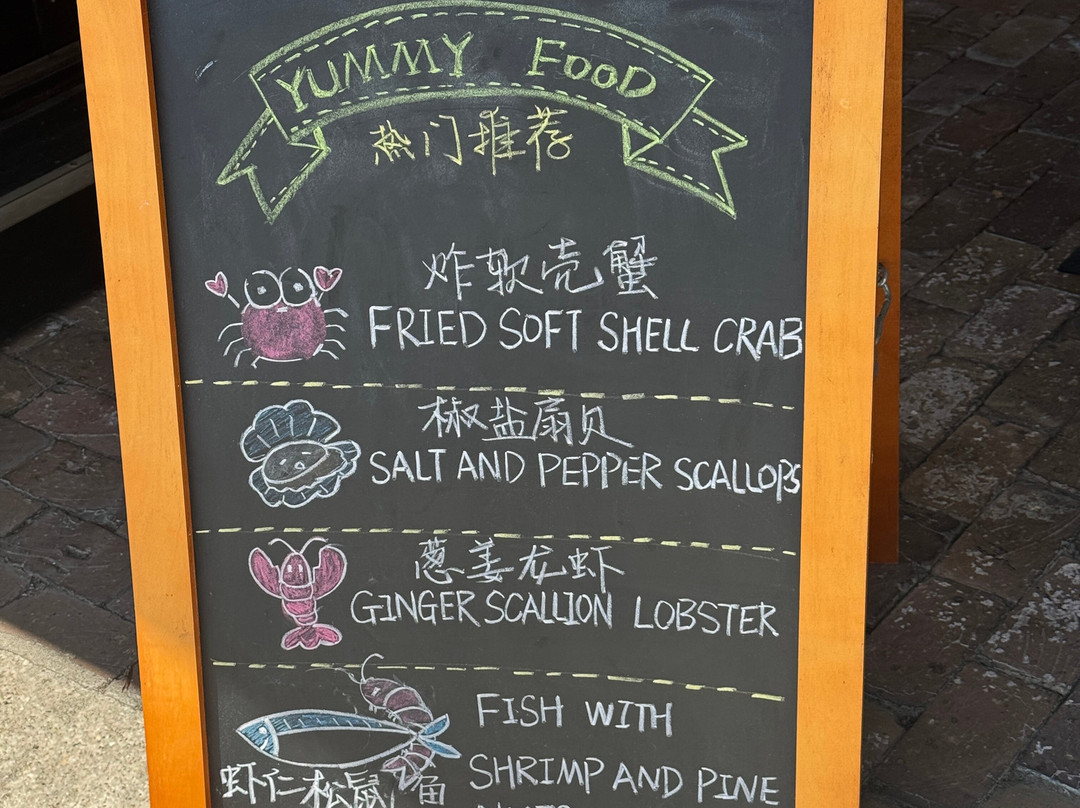 YUMMY FOOD
热门推荐
炸软壳蟹
FRIED SOFT SHELL CRAB
椒盐扇贝
SALT AND PEPPER SCALLOPS
葱姜龙虾
GINGER SCALLION LOBSTER
FISH WITH
SHRIMP AND PINE
虾仁松鼠鱼